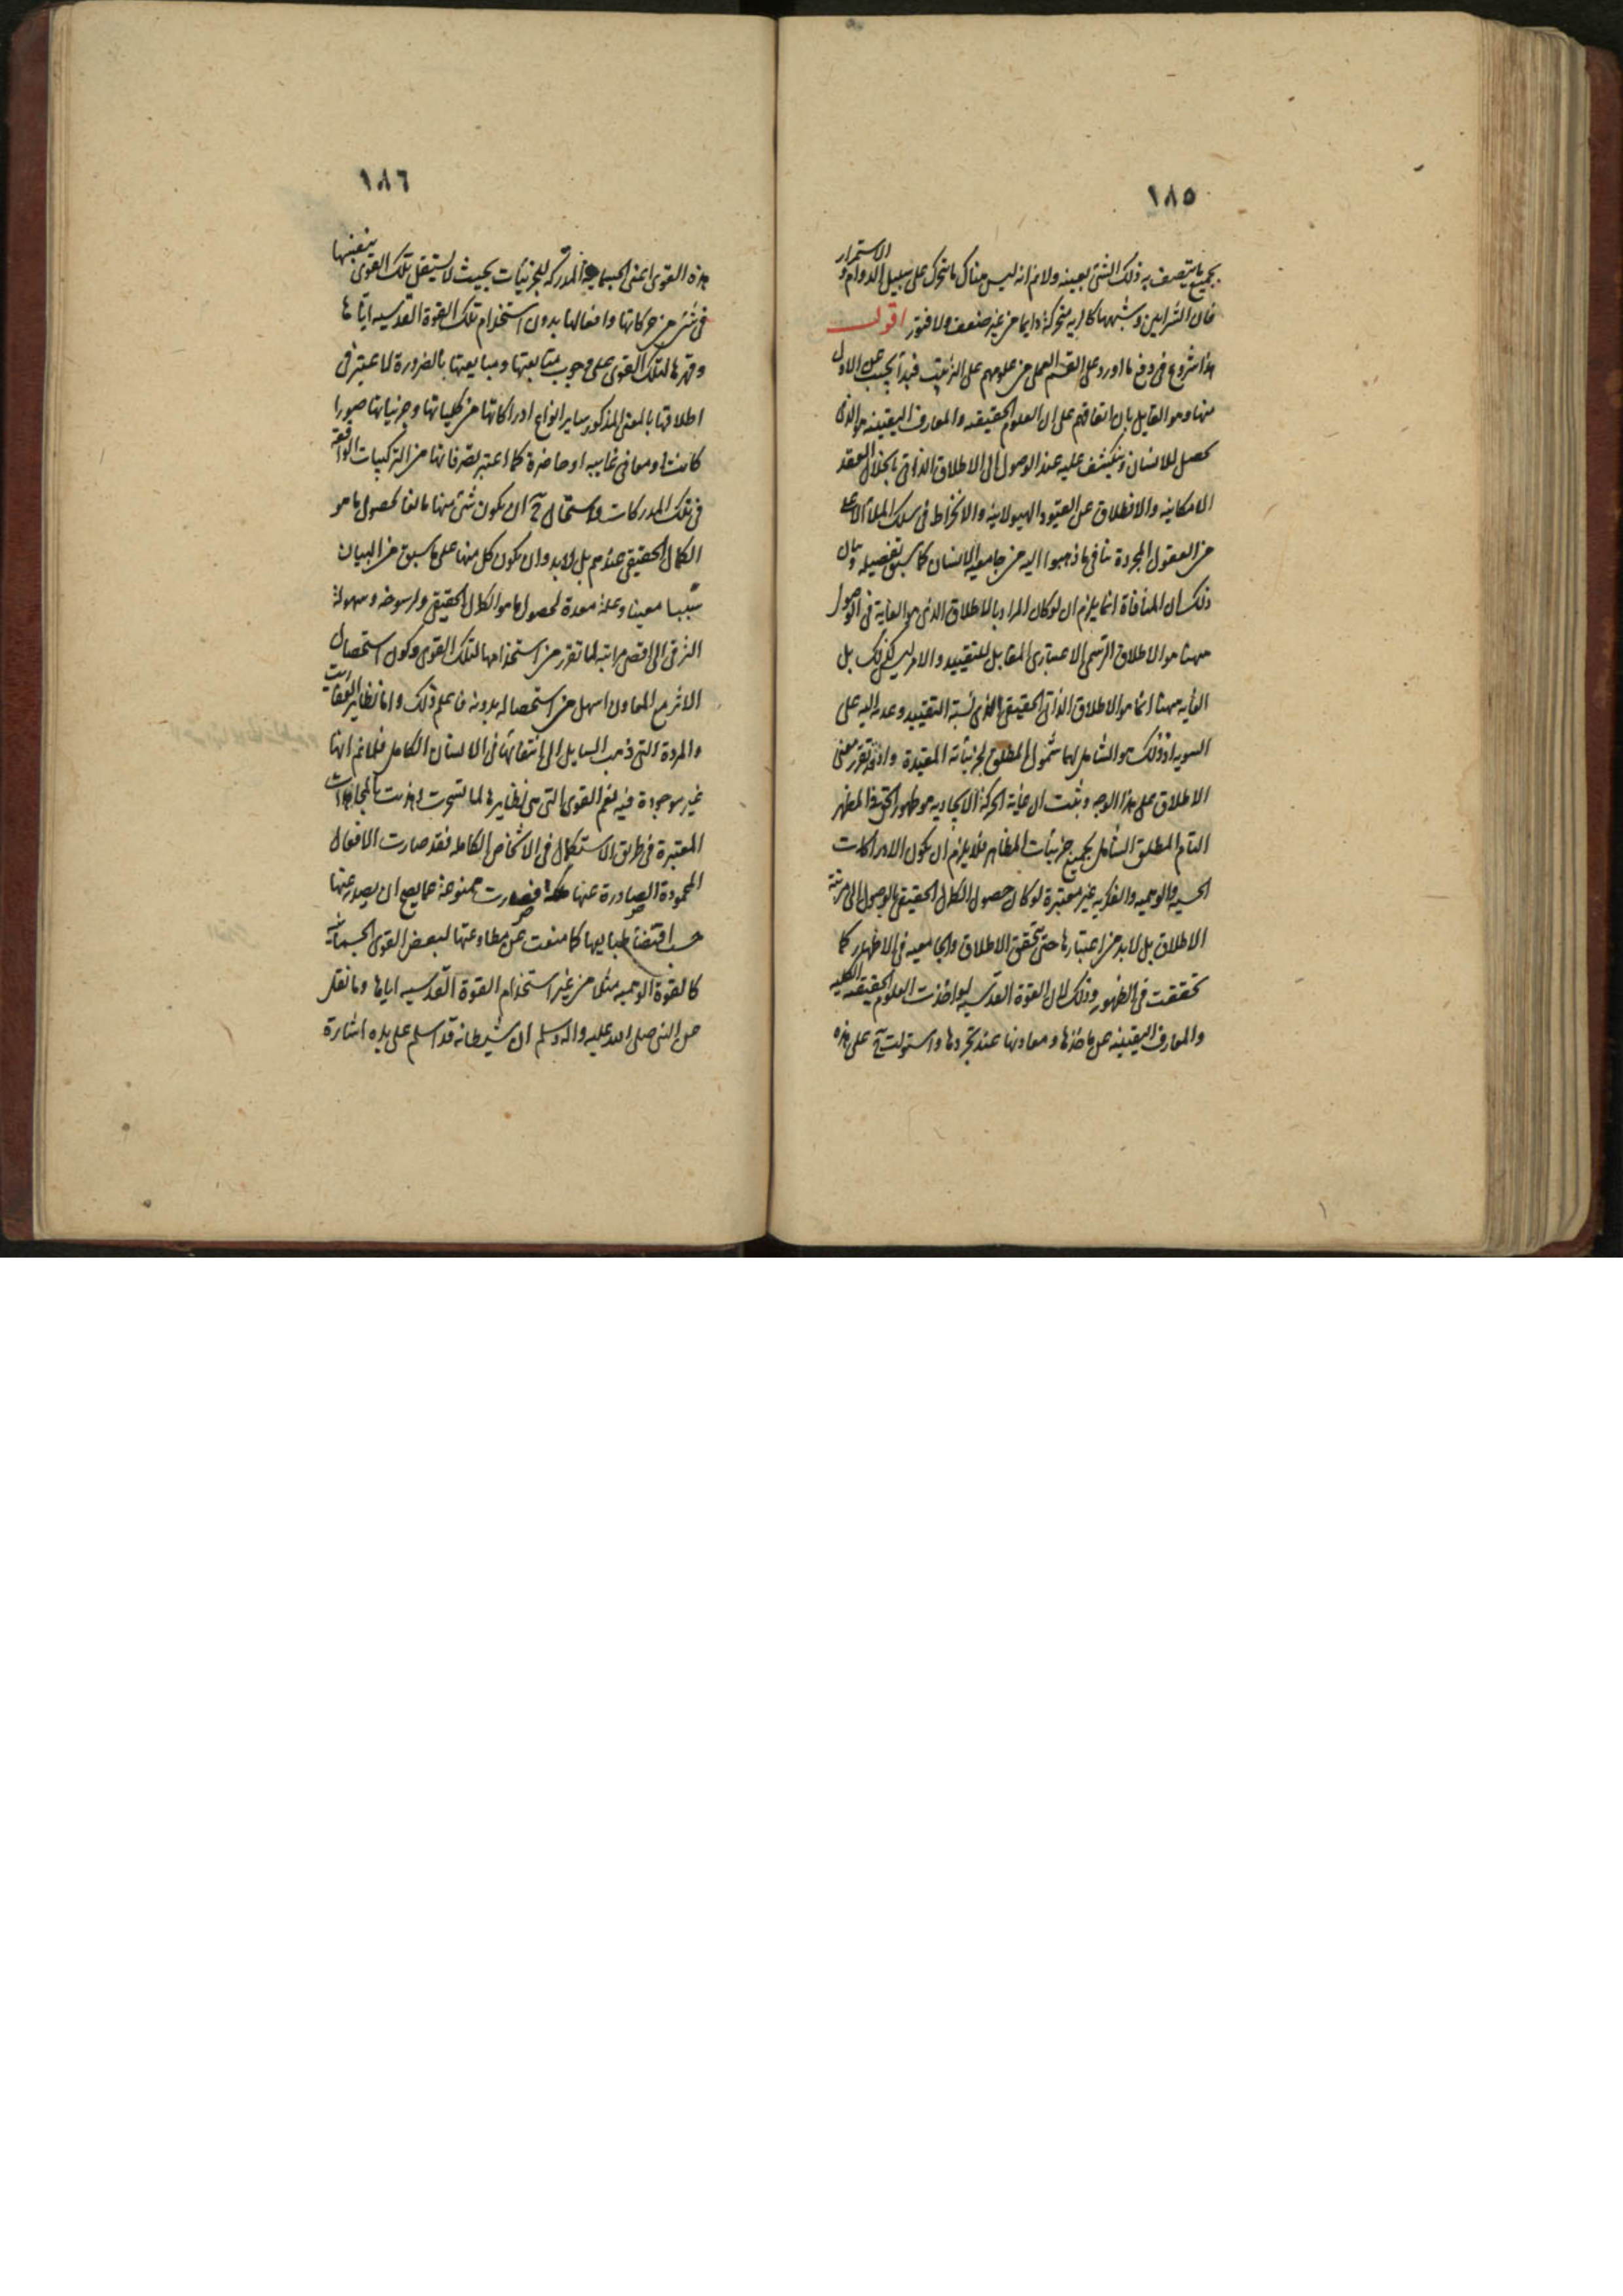 ١٨٥
بجميع ما يتصف به ذلك الشئ بعينه ولا نم انه ليس هناك ما يتحرك على سبيل الدوام و الاستمرار
فان الشرايين وشبهها كالريه متحركة دايما من غير ضعف ولا فتور اقول
هذا شروع فى دفع ما اورد على القسم العملى من علومهم على الترتيب فبدأ يجيب عن الاول
منها وهو القايل بان اتفاقهم على ان العلوم الحقيقيه والمعارف اليقينيه هو الذى
يحصل للانسان وينكشف عليه عند الوصول الى الاطلاق الذاتى بانحلال العقد
الامكانيه والانطلاق عن القيود الهيولانية والانخراط فى سلك الملأ الاعلى
من العقول المجردة ينافى ما ذهبوا اليه من جامعيه الانسان كما سبق تفصيله وبيان
ذلك ان المنافاة انما يلزم ان لو كان المراد بالاطلاق الذى هو الغاية فى الوصول
ههنا هو الاطلاق الرسمى الاعتبارى المقابل للتقييد والامر ليس كذلك بل
الغايه ههنا انما هو الاطلاق الذاتى الحقيقى الذى نسبة التقييد وعدمه اليه على
السويه اذ ذلك هو الشامل لهما شمول المطلق لجزئياته المقيدة واذ قد تقرر معنى
الاطلاق على هذا الوجه وثبت ان غاية الحركة الايجاديه هو ظهور الحق فى المظهر
التام المطلق الشامل لجميع جزئيات المظاهر فلا يلزم ان يكون الادراكات
الحسيه والوهميه والفكريه غير معتبرة لو كان حصول الكمال الحقيقى بالوصول الى مرتبة
الاطلاق بل لابد من اعتبارها حتى تحقق الاطلاق والجامعيه فى الاظهار كما
تحققت فى الظهور وذلك لان القوة القدسيه لو اخذت العلوم الحقيقيه الكليه
والمعارف اليقينيه عن ماخذها ومعادنها عند تجردها واستولت ح على هذه
١٨٦
هذه القوى اعنى الجسمانية المدركه للجزئيات بحيث لا يستقل تلك القوى بنفسها
فى شئ من حركاتها وافعالها بدون استخدام تلك القوة القدسيه اياها
وقهرها لتلك القوى على وجوب متابعتها ومبايعتها بالضرورة لما عبتر فى
اطلاقها بالمعنى المذكور ساير انواع ادراكاتها من كلياتها وجزئياتها صورا
كانت او معانى غايبه او حاضرة كما اعتبر تصرفاتها من التركيبات الواقعة
فى تلك المدركات واستحال ح ان يكون شئ منها مانعا لحصول ما هو
الكمال الحقيقى عندهم بل لابد وان يكون كل منها على ما سبق من البيان
سببا معينا وعلة معدة لحصول ما هو الكمال الحقيقى ولرسوخه وسهولة
الترقى الى اقصى مراتبه لما تقرر من استخدامها لتلك القوى وكون استحصال
الاثر مع المعاون اسهل من استحصاله بدونه فاعلم ذلك واما نظاير العفاريت
والمردة التى ذهب السايل الى انتفائها فى الانسان الكامل فلا نم انها
غير موجودة فيه نعم القوى التى هى نظايرها لما تسخرت وهذبت بالمجاهدات
المعتبرة فى طريق الاستكمال فى الاشخاص الكامله فقد صارت الافعال
المحمودة الصادرة عنها ملكة فصارت ممنوعة عما يصح ان يصدر عنها
حسب اقتضاء طبايعها كما منعت عن مطاوعتها لبعض القوى الجسمانيه
كالقوة الوهميه مثلا من غير استخدام القوة القدسيه اياها وما نقل
عن النبى صلى الله عليه واله وسلم ان شيطانه قد اسلم على يده اشارة